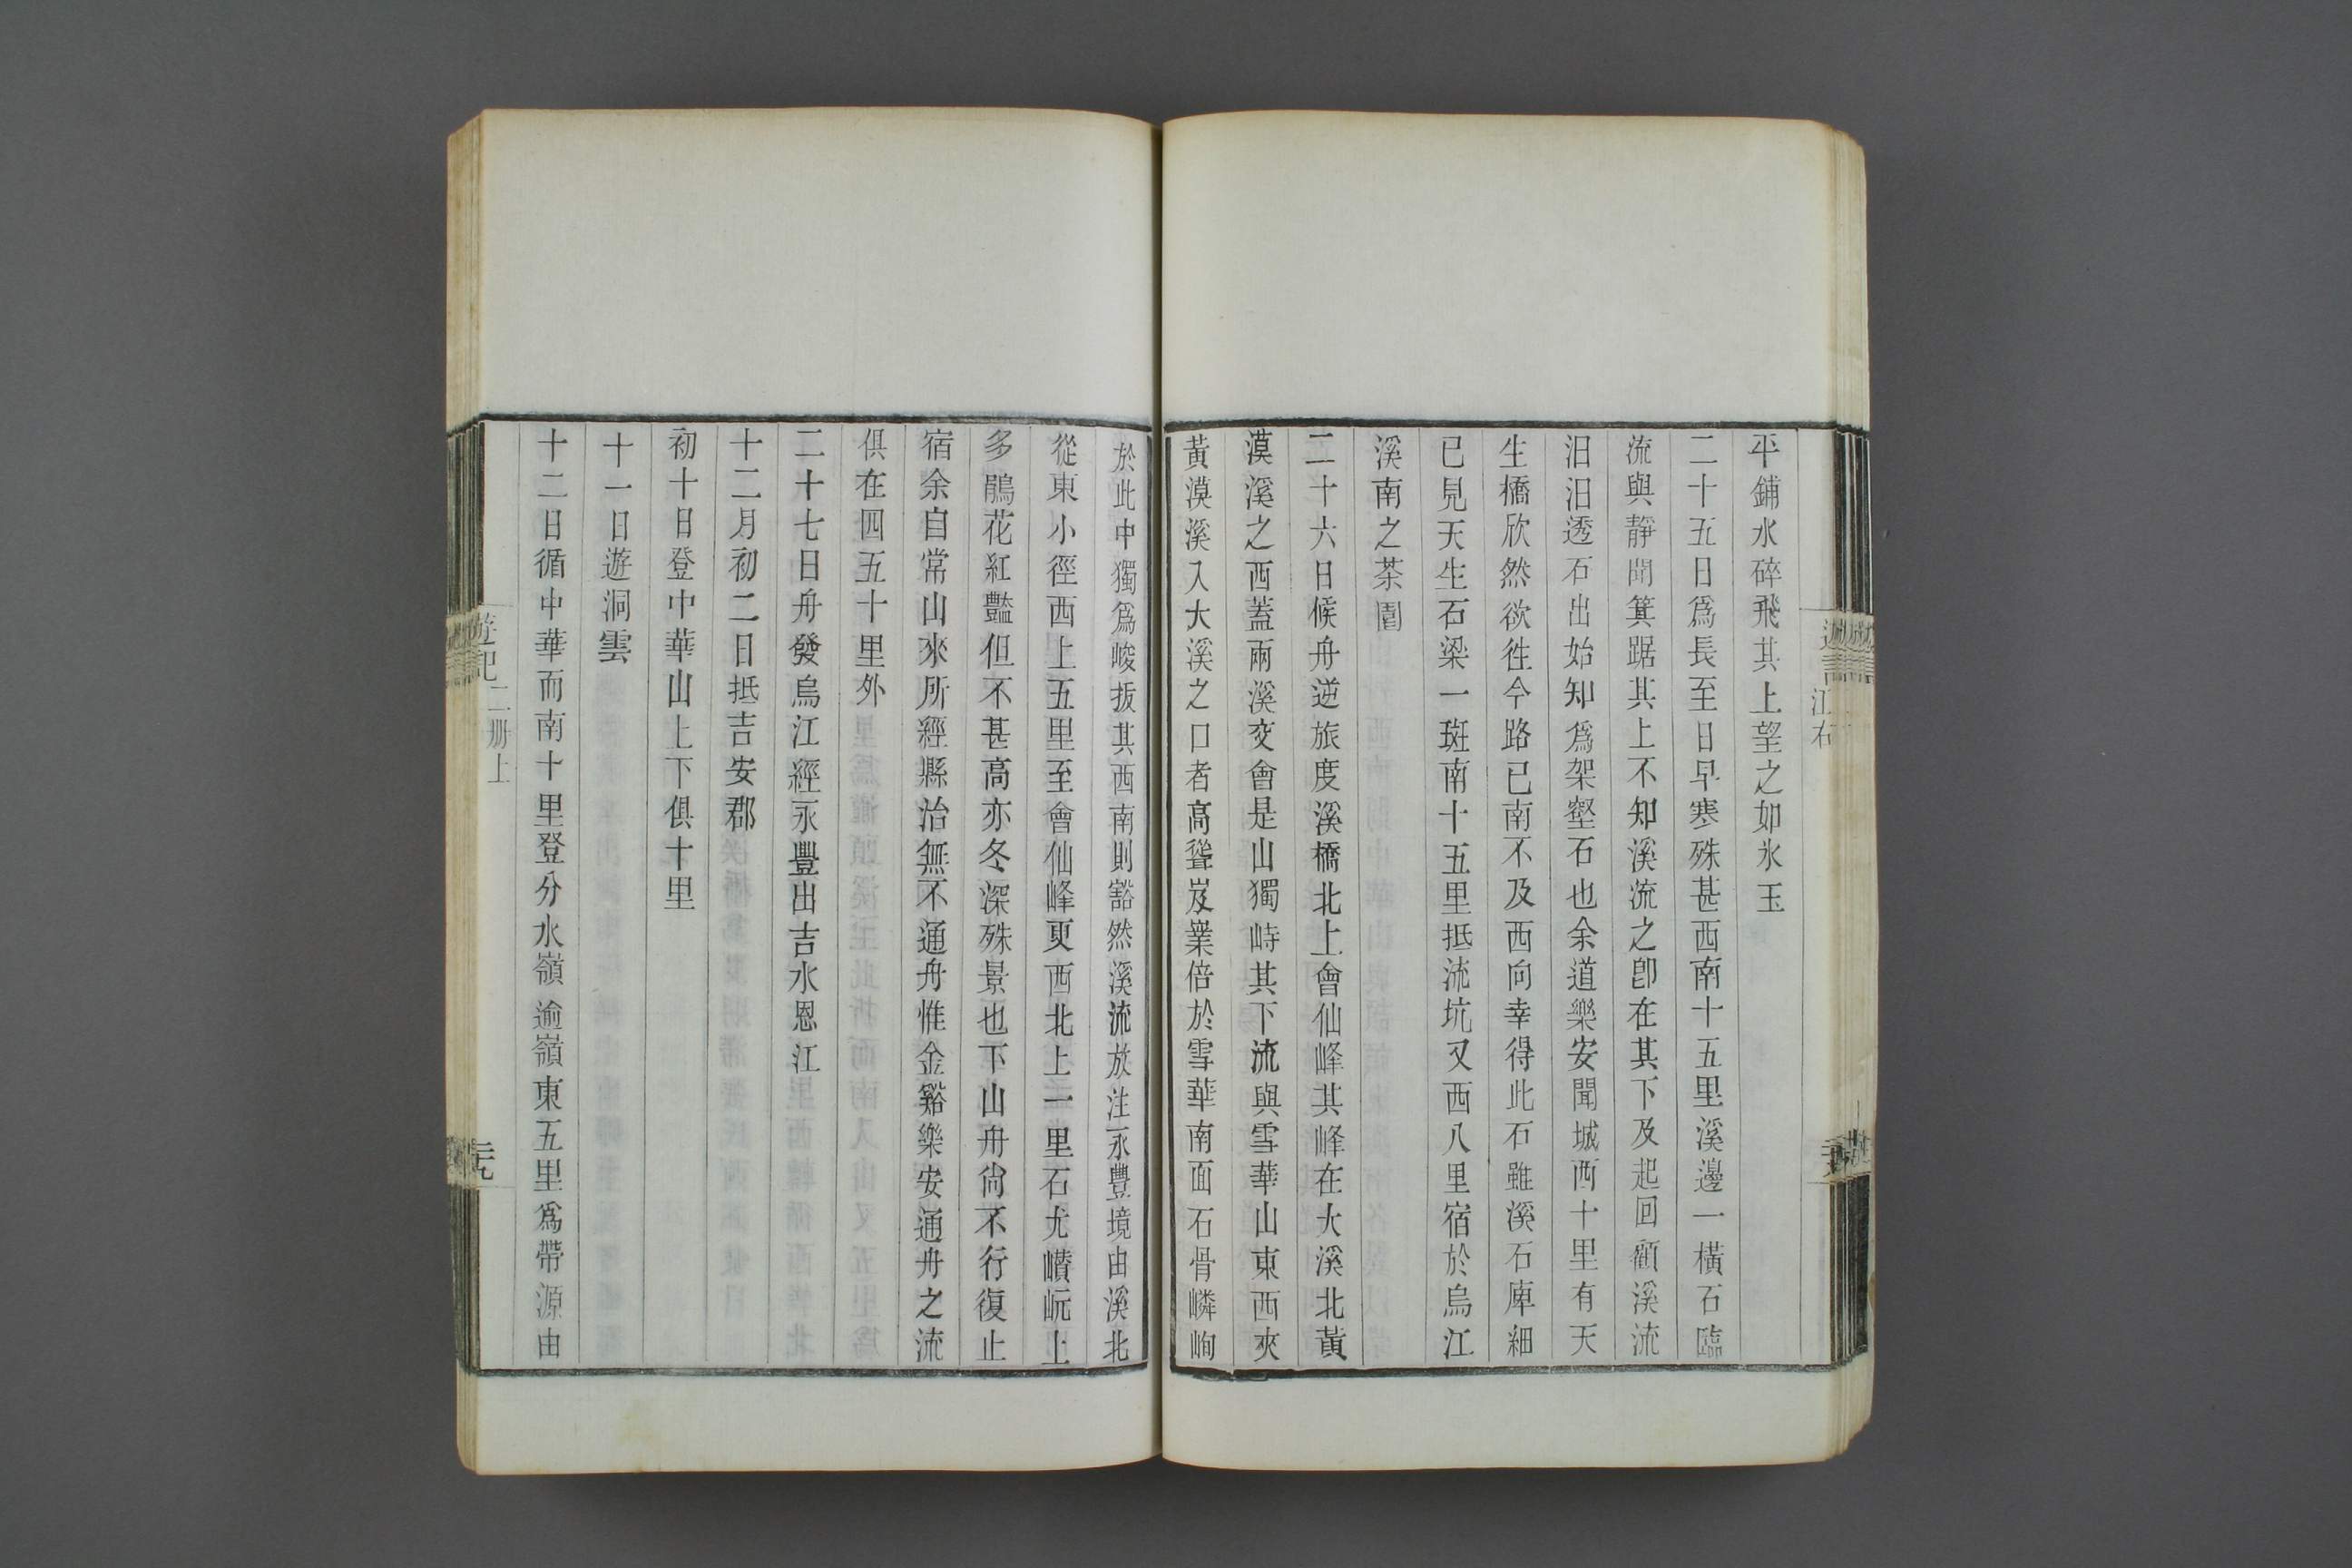 平鋪水碎飛其上望之如氷玉
二十五日爲長至日早寒殊甚西南十五里溪邊一橫石臨
流與靜聞箕踞其上不知溪流之卽在其下及起回顧溪流
汨汨透石出始知爲架壑石也余道樂安聞城西十里有天
生橋欣然欲徃今路已南不及西向幸得此石雖溪石庳細
已見天生石梁一斑南十五里抵流坑又西八里宿於烏江
溪南之茶園
二十六日候舟逆旅度溪橋北上會仙峰其峰在大溪北黃
漠溪之西蓋兩溪交會是山獨峙其下流與雪華山東西夾
黃漠溪入大溪之口者高聳岌嶪倍於雪華南面石骨嶙峋
於此中獨爲峻拔其西南則豁然溪流放注永豐境由溪北
從東小徑西上五里至會仙峰更西北上一里石尤巑岏上
多鵑花紅豔但不甚高亦冬深殊景也下山舟尙不行復止
宿余自常山來所經縣治無不通舟惟金谿樂安通舟之流
俱在四五十里外
二十七日舟發烏江經永豐出吉水恩江
十二月初二日抵吉安郡
初十日登中華山上下俱十里
十一日遊洞雲
十二日循中華而南十里登分水嶺逾嶺東五里爲帶源由
遊記
二册上
江右